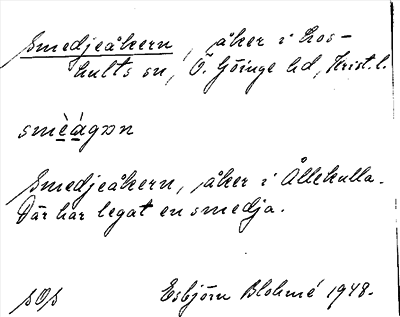 Smedjeåkern, åker i Los-
hults sn, Ö. Göinge hd, Krist. l.
smèágɔn
Smedjeåkern, åker i Ållekulla.
Där har legat en smedja.
sOs
Esbjörn Blohmé 1948.